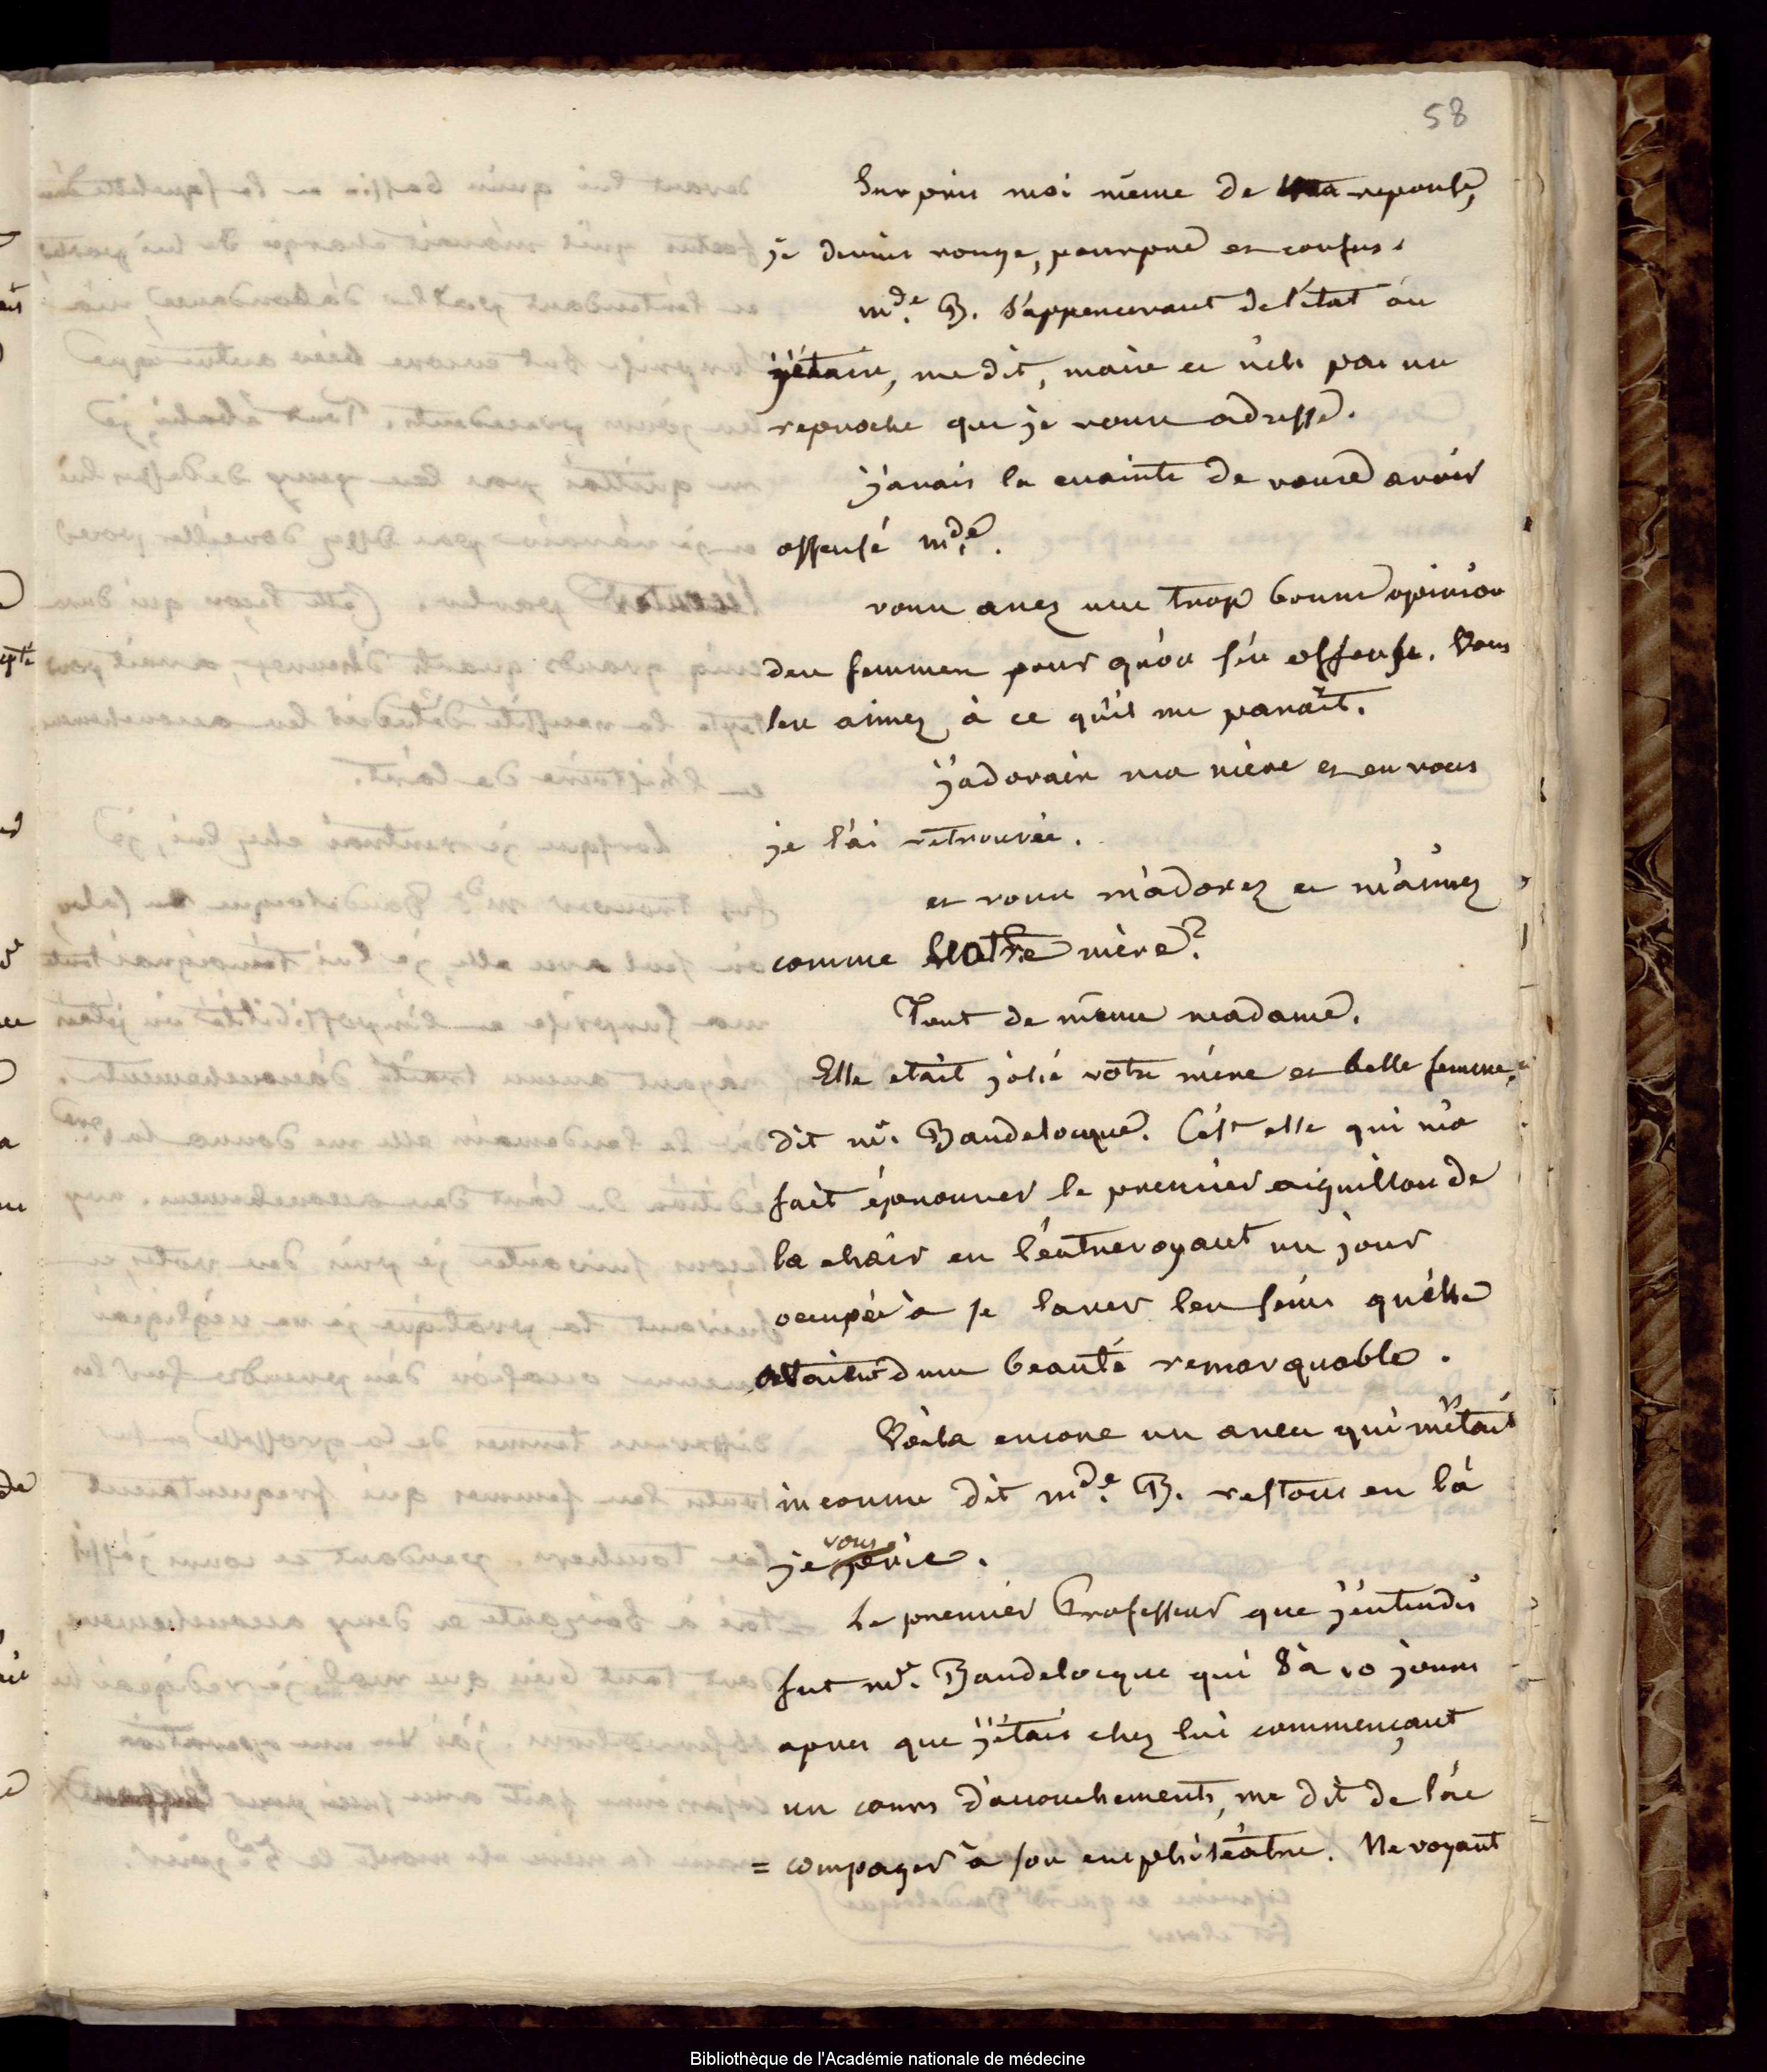 58
Surpris moi même de ma reponse,
je devins rouge, pourpre et confus.
mde. B. s'appercevant de l'état où
j'étais, me dit, mais ce n'est pas un
reproche que je vous adresse.
j'avais la crainte de vous avoir
offensé mde.
vous avez une trop bonne opinion
des femmes pour qu'on s'en offense. Vous
les aimez à ce qu'il me paraît.
j'adorais ma mère et en vous
je l'ai retrouvée.
et vous m'adorez et m'aimez
comme votre mère?
Tout de même madame.
Elle etait jolie votre mère et belle femme,
dit mr. Baudelocque. C'est elle qui m'a
fait éprouver le premier aiguillon de
la chair en l'entrevoyant un jour
occupée à se laver les seins qu'elle
d'une beauté remarquable.
Voila encore un aveu qui m'était
inconnu dit mde. B. restons en là
je vous prie.
Le premier Professeur que j'entendis
fut mr. Baudelocque qui 8 à 10 jours
apres que j'étais chez lui commençant
un cours d'accouchements, me dit de l'ac
= compager à son emphitéatre. Ne voyant
Bibliothèque de l'Académie nationale de médecine